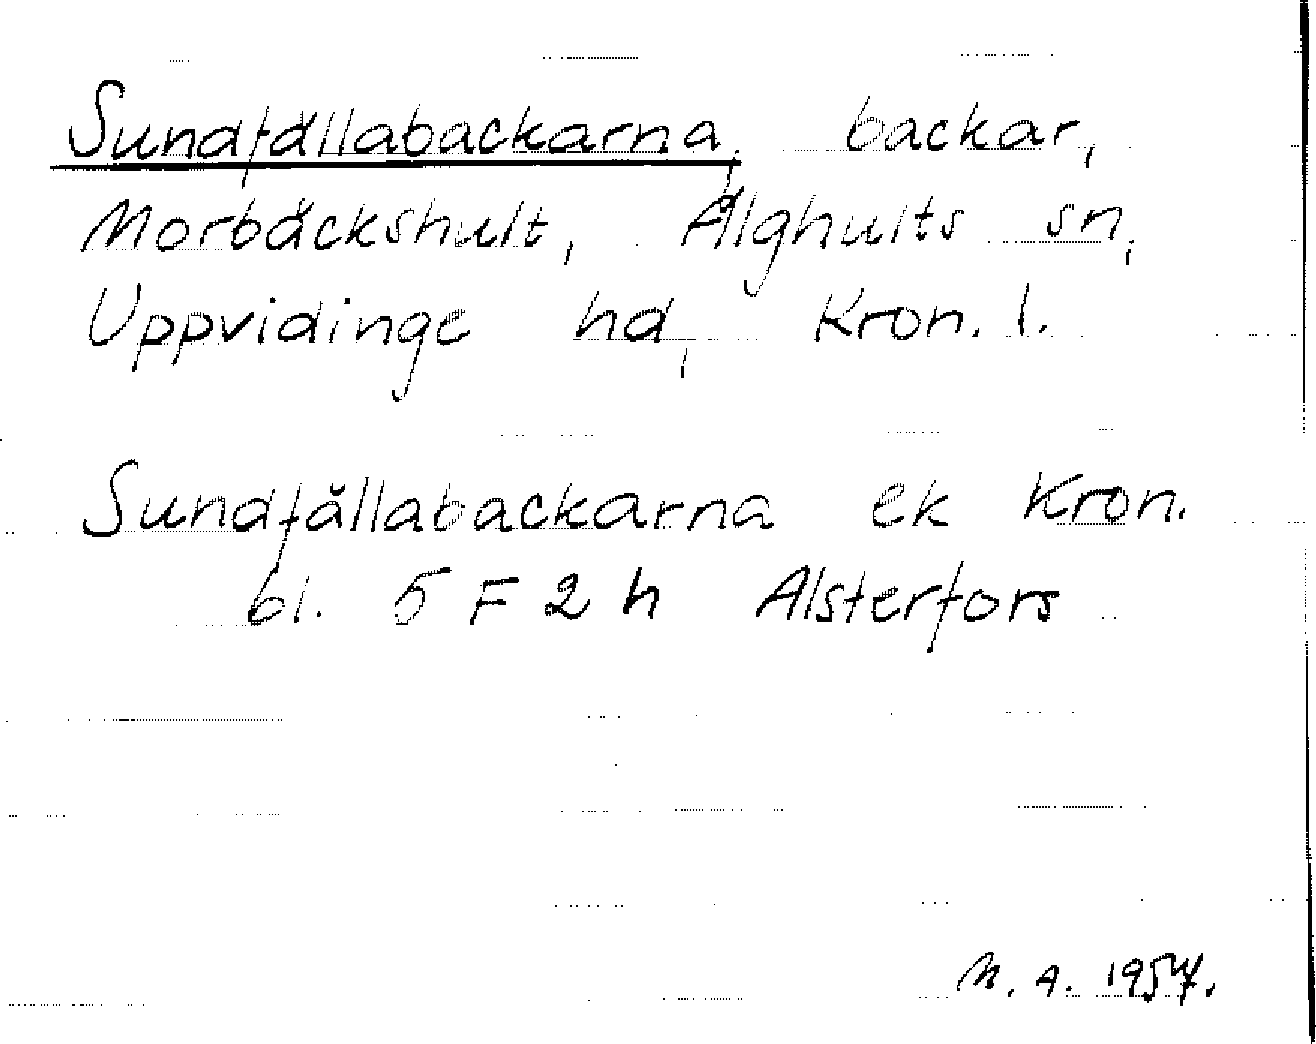 Sundfällabackarna, backar,
Morbäckshult, Älghults sn,
Uppvidinge hd, Kron. l.
Sundfällabackarna ek Kron.
bl. 5 F 2 h Alsterfors
M. A. 1957.